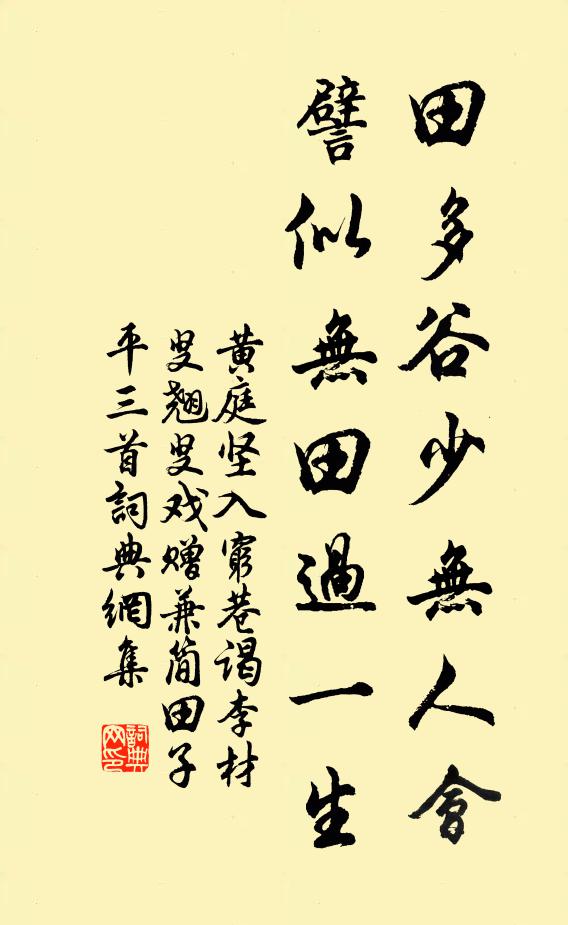 田多谷少無人會
譬似無田過一生
黄庭坚入窮巷谒李材
叟翘叟戏赠兼简田子
平三首詞典網集
詞典網印